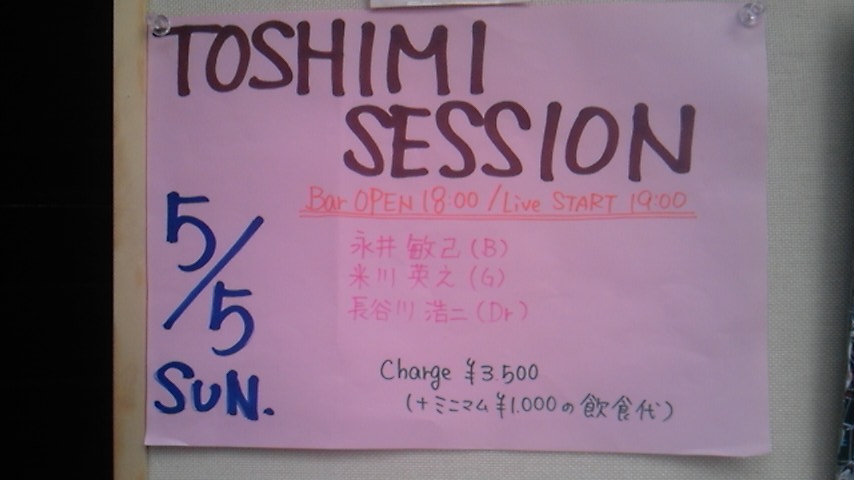 TOSHIMI
SESSION
Bar OPEN 18:00 / Live START 19:00
5/5
SUN.
永井 敏己 (B)
米川 英之 (G)
長谷川 浩二 (Dr)
Charge ¥3.500
(+ミニマム¥1.000の飲食代)